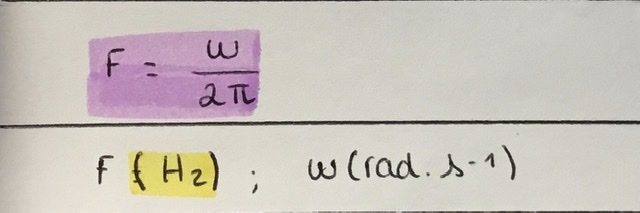 F = ω / 2π
F (Hz) ; ω (rad. s-1)